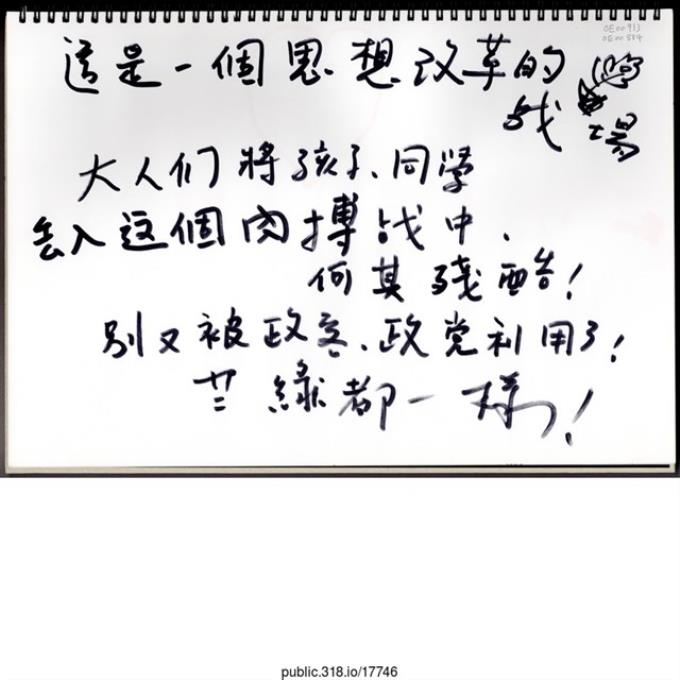 OE00913
OE00584
這是一個思想改革的
战場
大人们將孩子、同學
丢入這個肉搏战中、
何其殘酷！
别又被政客、政党利用了！
芒綠都一樣！
public.318.io/17746